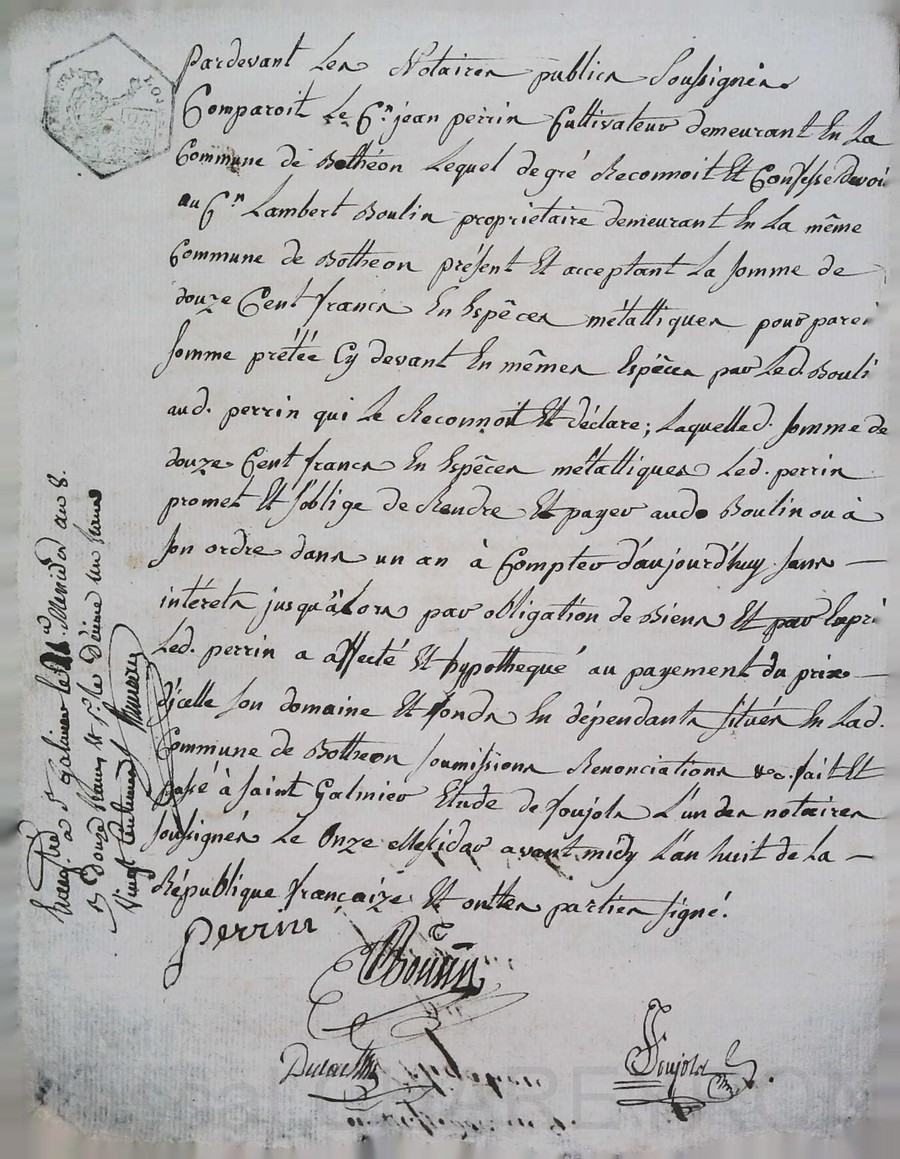 Pardevant Les Notaires publics Soussignés
Comparoit Le C.en jean perrin Cultivateur demeurant En La
Commune de Bothéon Lequel de gré Reconnoit Et Confesse devoi
au C.en Lambert Boulin propriétaire demeurant En La même
Commune de Botheon présent Et acceptant La somme de
douze Cent francs En Espêces métalliques pour parei
somme prétée Cy devant En mêmes Espêces par Led. Bouli
aud. perrin qui Le Reconnoit Et déclare ; Laquelle d. somme de
douze Cent francs En Espêces métalliques Led. perrin
promet Et s'oblige de Rendre Et payer aud. Boulin ou à
son ordre dans un an à Compter d'aujourd'huy sans —
intérets jusqu'alors par obligation de Biens Et par Expri
Led. perrin a affecté Et hypothequé au payement du prix —
d'jcelle son domaine Et fonds En dépendants situés En Lad.
Commune de Botheon soumissions Renonciations &c. fait Et
passé à Saint Galmier Etude de Soujols L'un des notaires
soussignés Le Onze Messidor avant midy L'an huit de La —
République françaize Et ont les parties signé.
Perrin
Boulin
Soujols
Enreg.tré a S.t Galmier le Messidor an 8.
R douze francs et p.r le Décime un franc
vingt Centimes